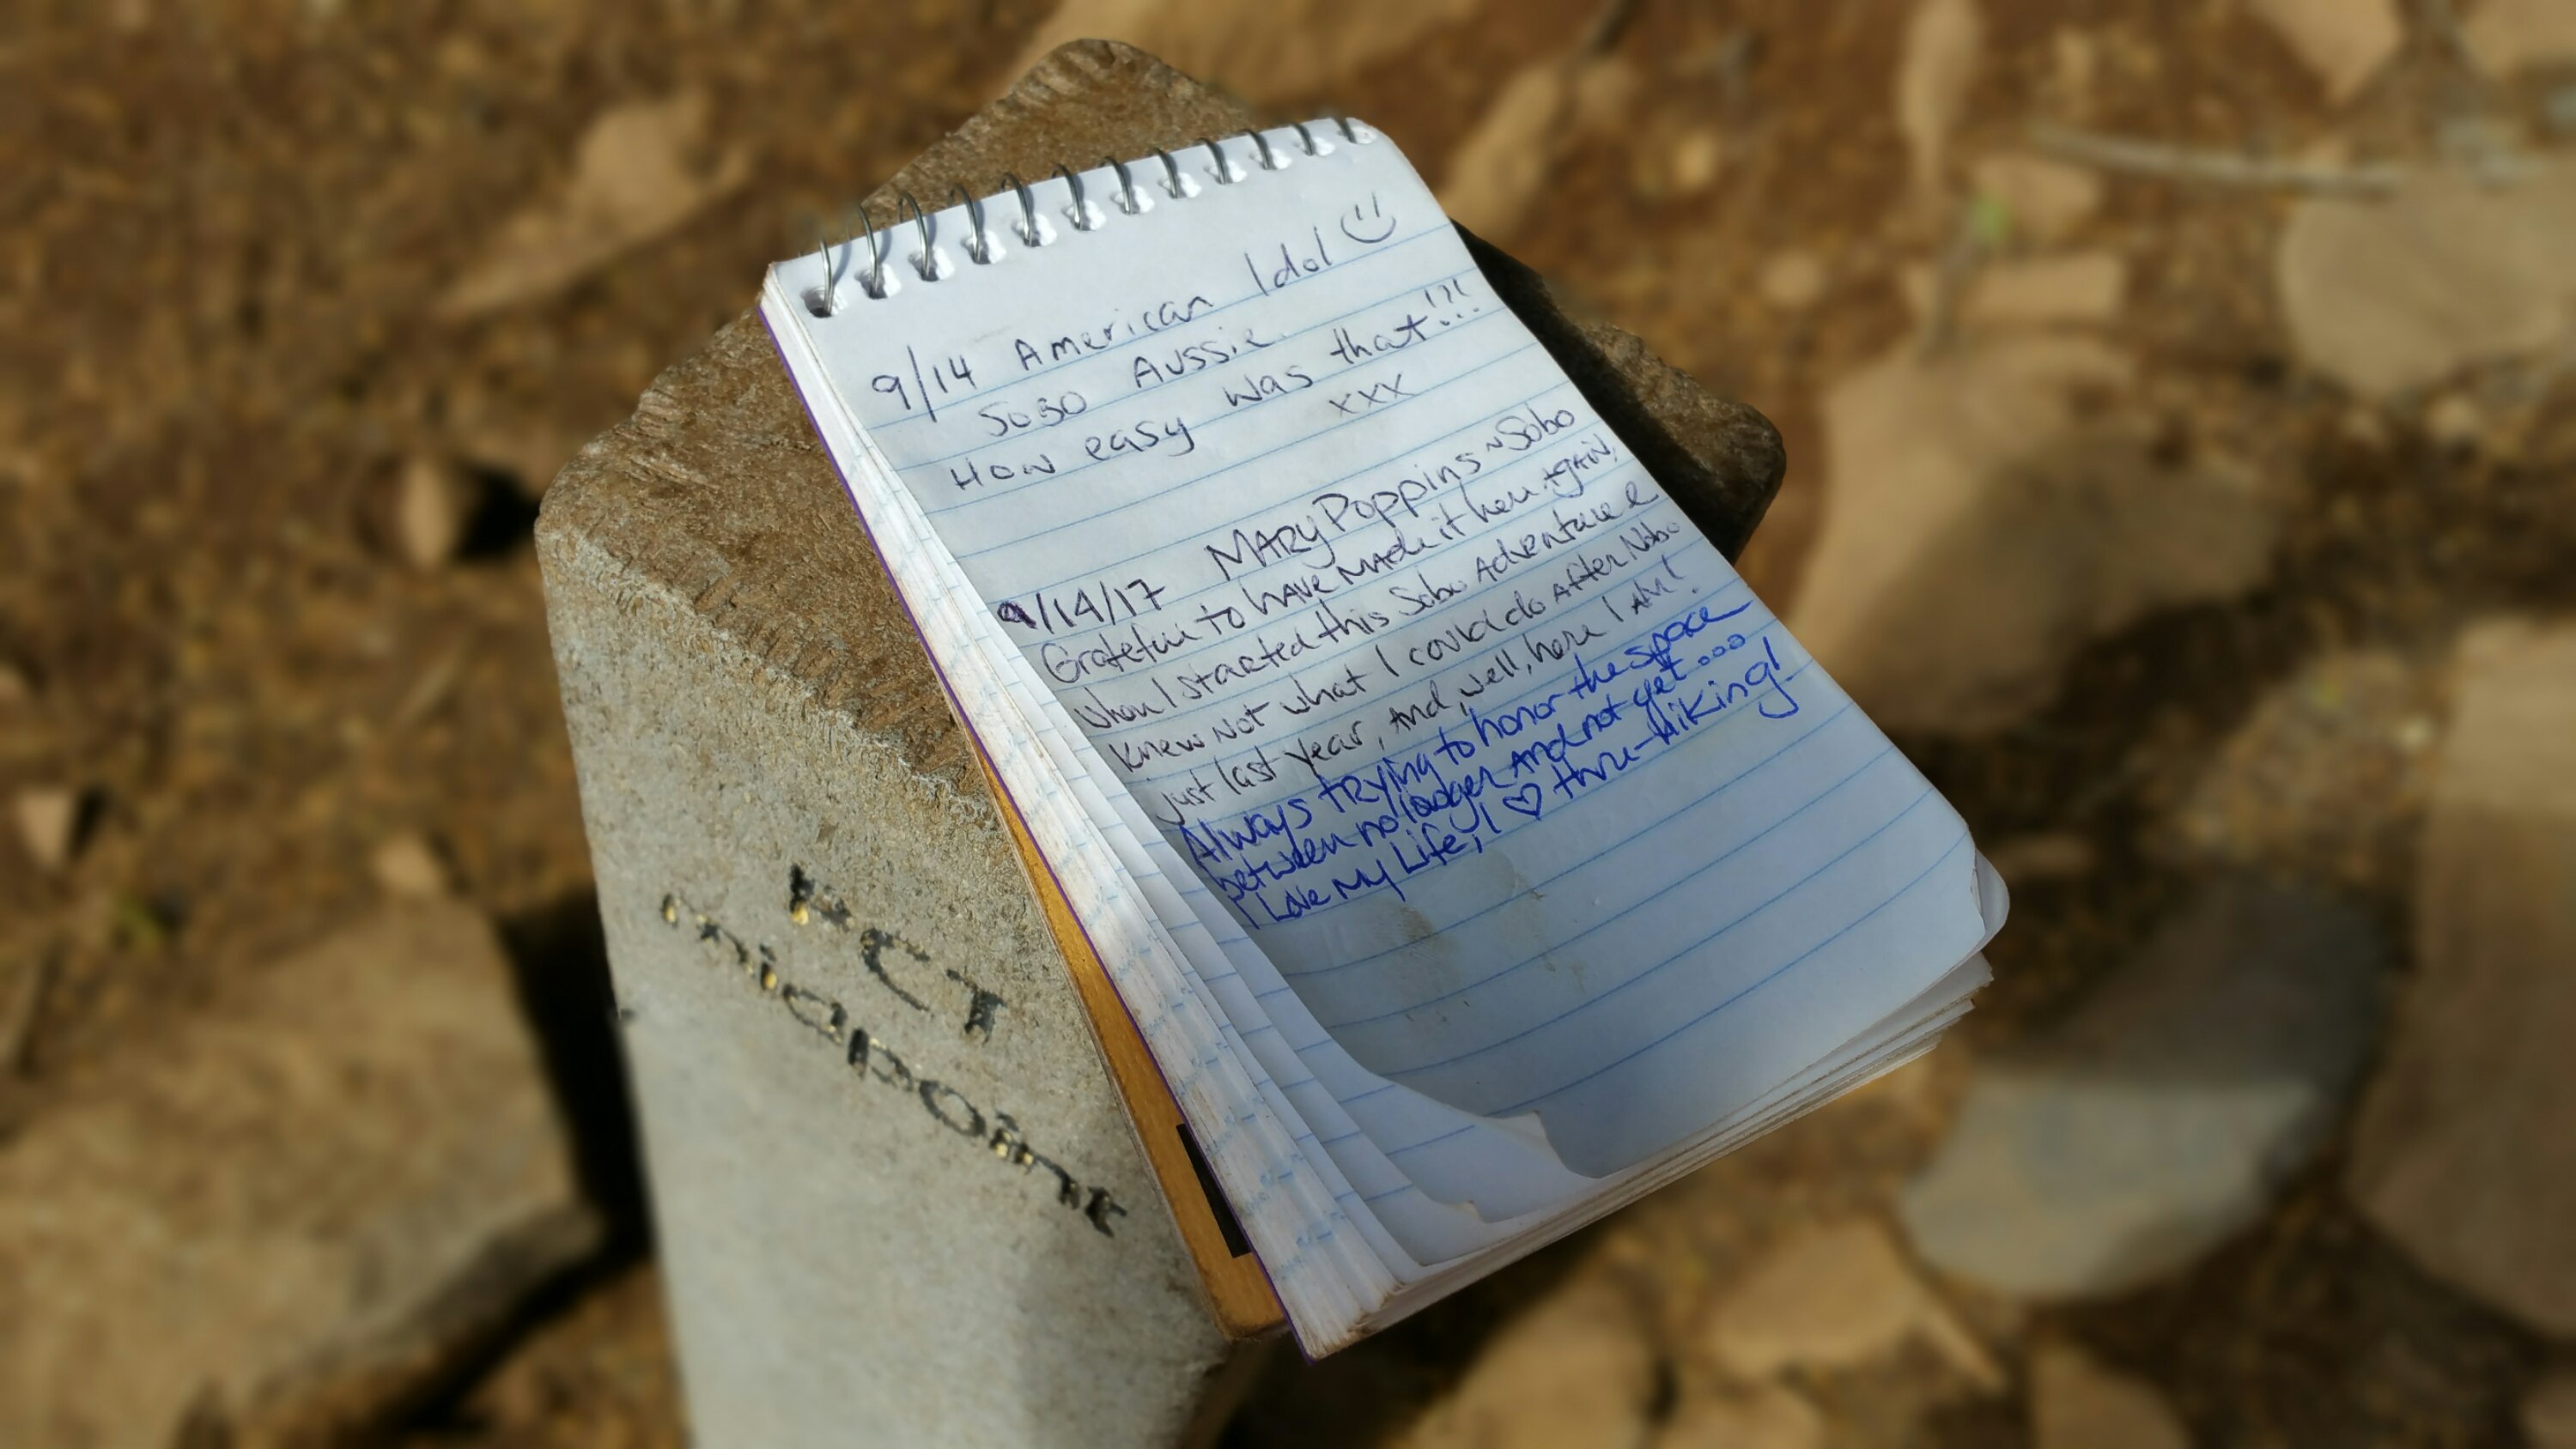 9/14 American Idol
SOBO Aussie.
How easy was that!?!
xxx
9/14/17 MARY POPPINS ~ Sobo
Grateful to HAVE MADE it here AgAiN,
when I started this Sobo Adventure &
knew Not what I could do After Nobo
just last year, And, well, here I AM!
Always tRying to honor the space
between no longer And not yet...
I Love My Life, I ♡ thru-Hiking!
PCT
midpoint